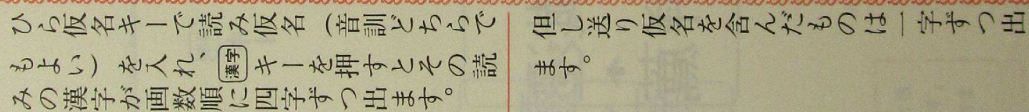 ひら仮名キーで読み仮名（音訓どちらで
もよい）を入れ、漢字キーを押すとその読
みの漢字が画数順に四字ずつ出ます。
但し送り仮名を含んだものは一字ずつ出
ます。